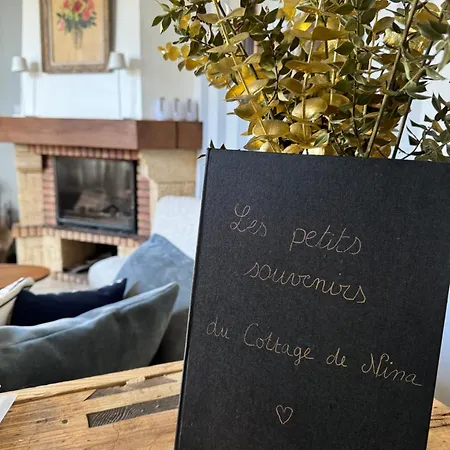 Les petits
souvenirs
du Cottage de Nina
♡